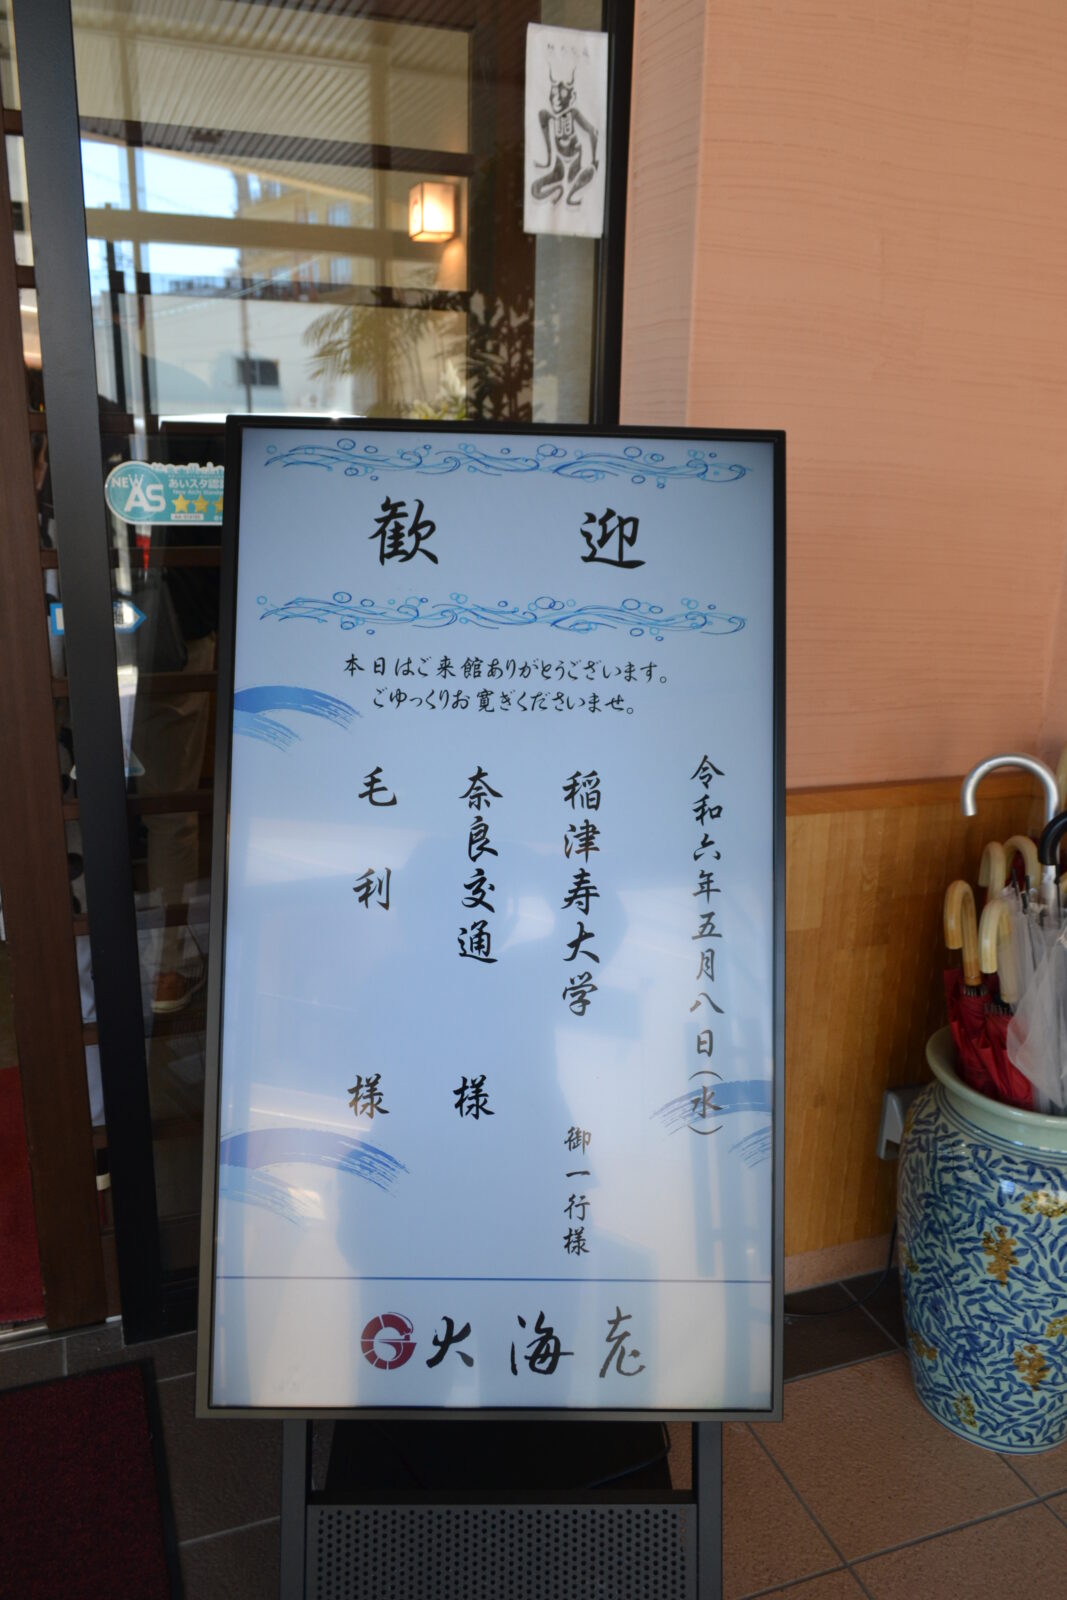 歓迎
本日はご来館ありがとうございます。
ごゆっくりお寛ぎくださいませ。
令和六年五月八日(水)
稲津寿大学 御一行様
奈良交通 様
毛利 様
火海老
NEW AS
あいスタ認証